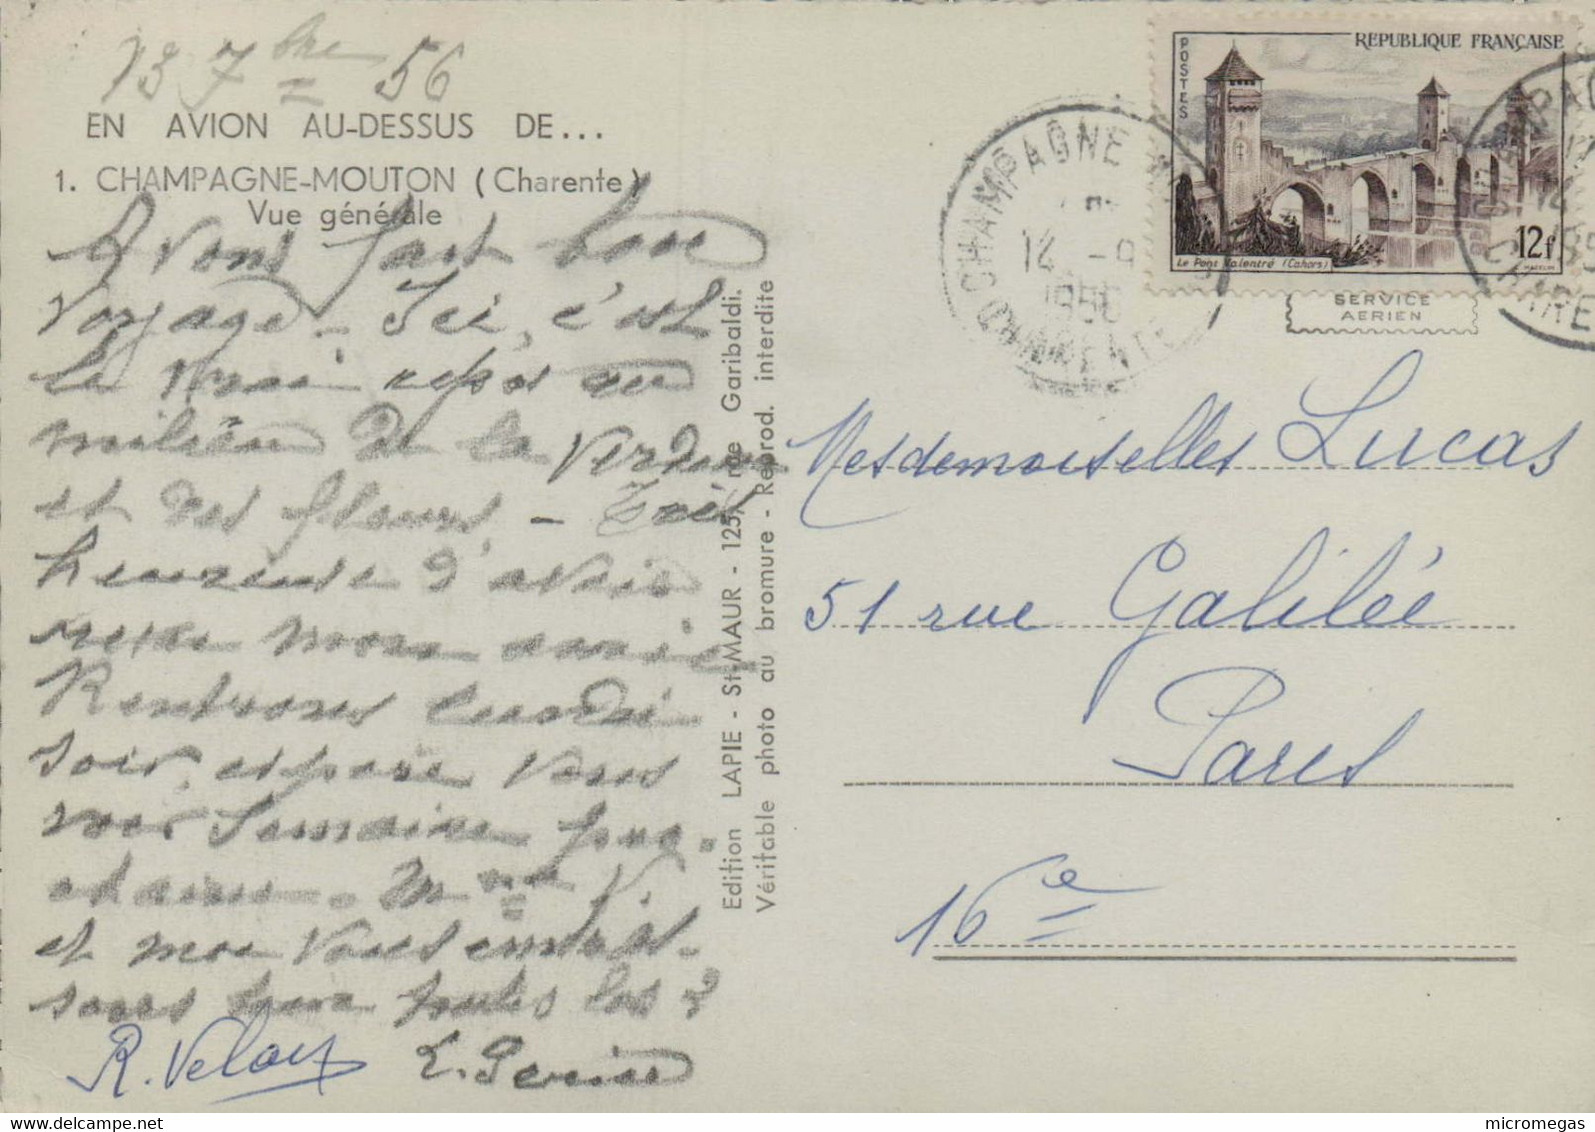 13 7bre 56
EN AVION AU-DESSUS DE...
1. CHAMPAGNE-MOUTON (Charente)
Vue générale
Avons fait bon
voyage - Ici, c'est
le vrai repos au
milieu de la verdure
et des fleurs. - Très
heureuse d'avoir
mon amie
Rentrons lundi
soir, espère vous
voir semaine pro-
chaine. Mme V.
et moi vous embras-
sons toutes les 2
R. Velay E.
Edition LAPIE - St-MAUR - 125, rue Garibaldi.
Véritable photo au bromure - Reprod. interdite
REPUBLIQUE FRANÇAISE
POSTES
12f
Le Pont Valentré (Cahors)
CHAMPAGNE
14 -9
1956
CHARENTE
SERVICE
AERIEN
Mesdemoiselles Lucas
51 rue Galilée
Paris
16e
micromegas